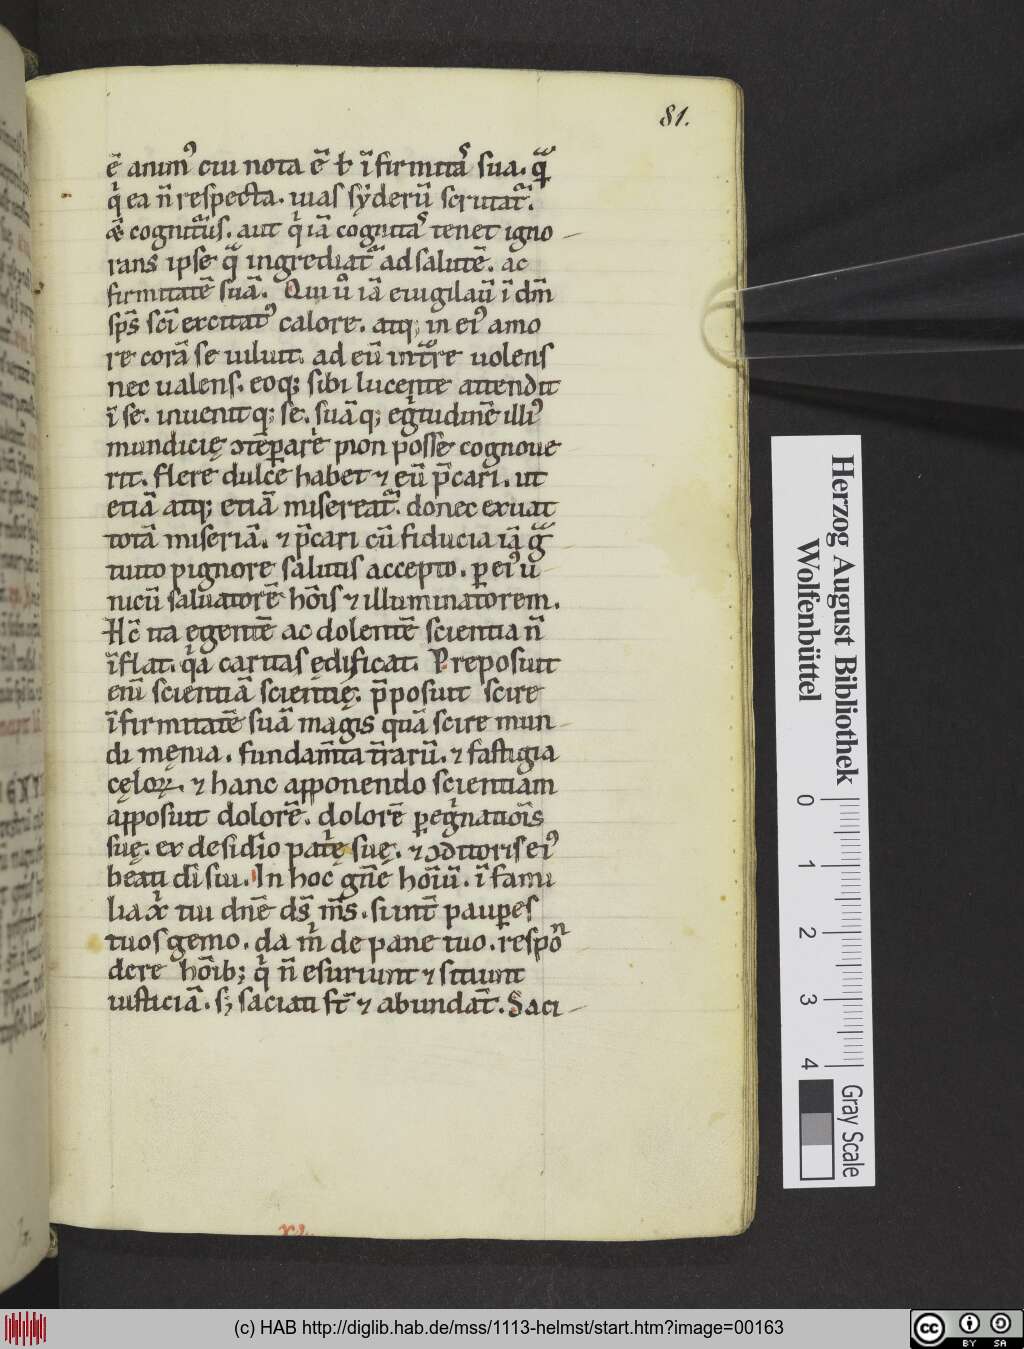 81.
ē animꝰ cui nota ē ł ĩfirmitaſ̄ sua. qᷓ
qͥ ea n̄ respecta. uias sẏderū scrutat᷑.
& cognitur᷑us. aut qͥ iā cognitaſ̄ tenet igno
rans ipse qᷓ ingrediat᷑ ad salutē. ac
firmitatē suā. Qui ů iā euigilauͥ̄ ī dm̄
sp̄s sc̄i excitatꝰ calore. atq; in eiꝰ amo
re corā se uiluit. ad eū intᷓre uolens
nec ualens. eoq; sibi lucente attendit
ī se. inuenit q; se. suāq; egͥtudinē illiꝰ
mundicię ↄtēꝑare n̄on posse cognoue
rit. flere dulce habet ⁊ eū p̄cari. ut
etiā atq; etiā misereat᷑. donec exuat
totā miseriā. ⁊ p̄cari cū fiducia iā gᷓ
tuito pignore salutis accepto. ꝑ eiꝰ u
nicū saluatorē hoīs ⁊ illuminatorem.
Hc̄ ita egentē ac dolentē scientia n̄
īflat. qͥa caritas ędificat. Preposuit
enī scientiā scientię. p̄posuit scire
īfirmitatē suā magis quā scire mun
di męnia. fundam̄ta t̄rarū. ⁊ fastigia
cęloꝝ. ⁊ hanc apponendo scientiam
apposuit dolorē. dolorē ꝑegͥnatiōis
suę. ex desidīo patͥę suę. ⁊ ↄditoris eiꝰ
beati dī sui. In hoc gn̄e hoīū. ī fami
lia xͥ tui dn̄ē ds̄ m̄s. si int̄ pauꝑes
tuos gemo. da m̄ de pane tuo. respōn
dere hoīb; qͥ n̄ esuriunt ⁊ sitiunt
iusticiā. sꝫ saciati st̄ ⁊ abundāt. Saci
Herzog August Bibliothek
Wolfenbüttel
0 1 2 3 4
Gray Scale
(c) HAB http://diglib.hab.de/mss/1113-helmst/start.htm?image=00163
cc BY SA